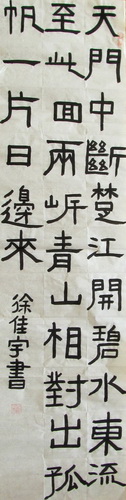 天門中斷楚江開碧水東流
至此回兩岸青山相對出孤
帆一片日邊來
徐佳宇書